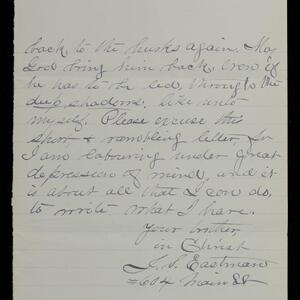 back to the husks again. May
God bring him back, even if
he has to be led, through the
deep shadows, like unto
myself. Please excuse this
short & rambling letter, for
I am labouring under great
depression of mind, and it
is about all that I can do,
to write what I have.
Your brother,
in Christ
J. S. Eastman
#604 Main St